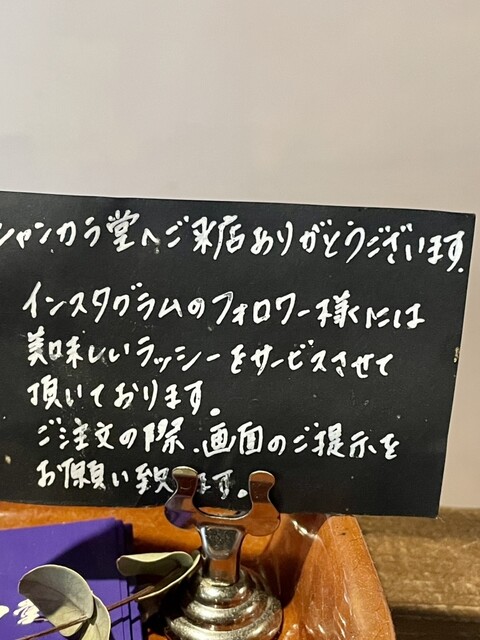 シャンカラ堂へご来店ありがとうございます。
インスタグラムのフォロワー様には
美味しいラッシーをサービスさせて
頂いております。
ご注文の際、画面のご提示を
お願い致します。